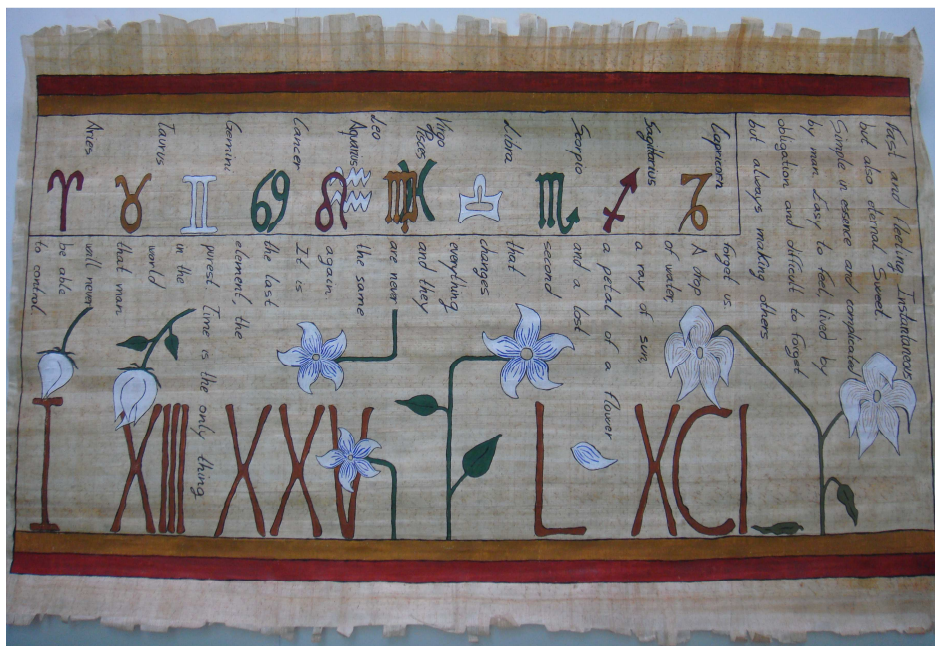 Fast and fleeting Instantaneous
but also eternal Sweet
Simple in essence and complicated
by man. Easy to feel, lived by
obligation and difficult to forget
but always making others
forget us.
A drop
of water
a ray of sun
a petal of a flower
and a lost
second
that
changes
everything
and they
are never
the same
again
It is
the last
element, the
purest Time is the only thing
in the
world
that man
will never
be able
to control
Capricorn
Sagitarius
Scorpio
Libra
Virgo
Pisces
Leo
Aquarius
Cancer
Gemini
Taurus
Aries
I
XIIII
XXV
L
XCI